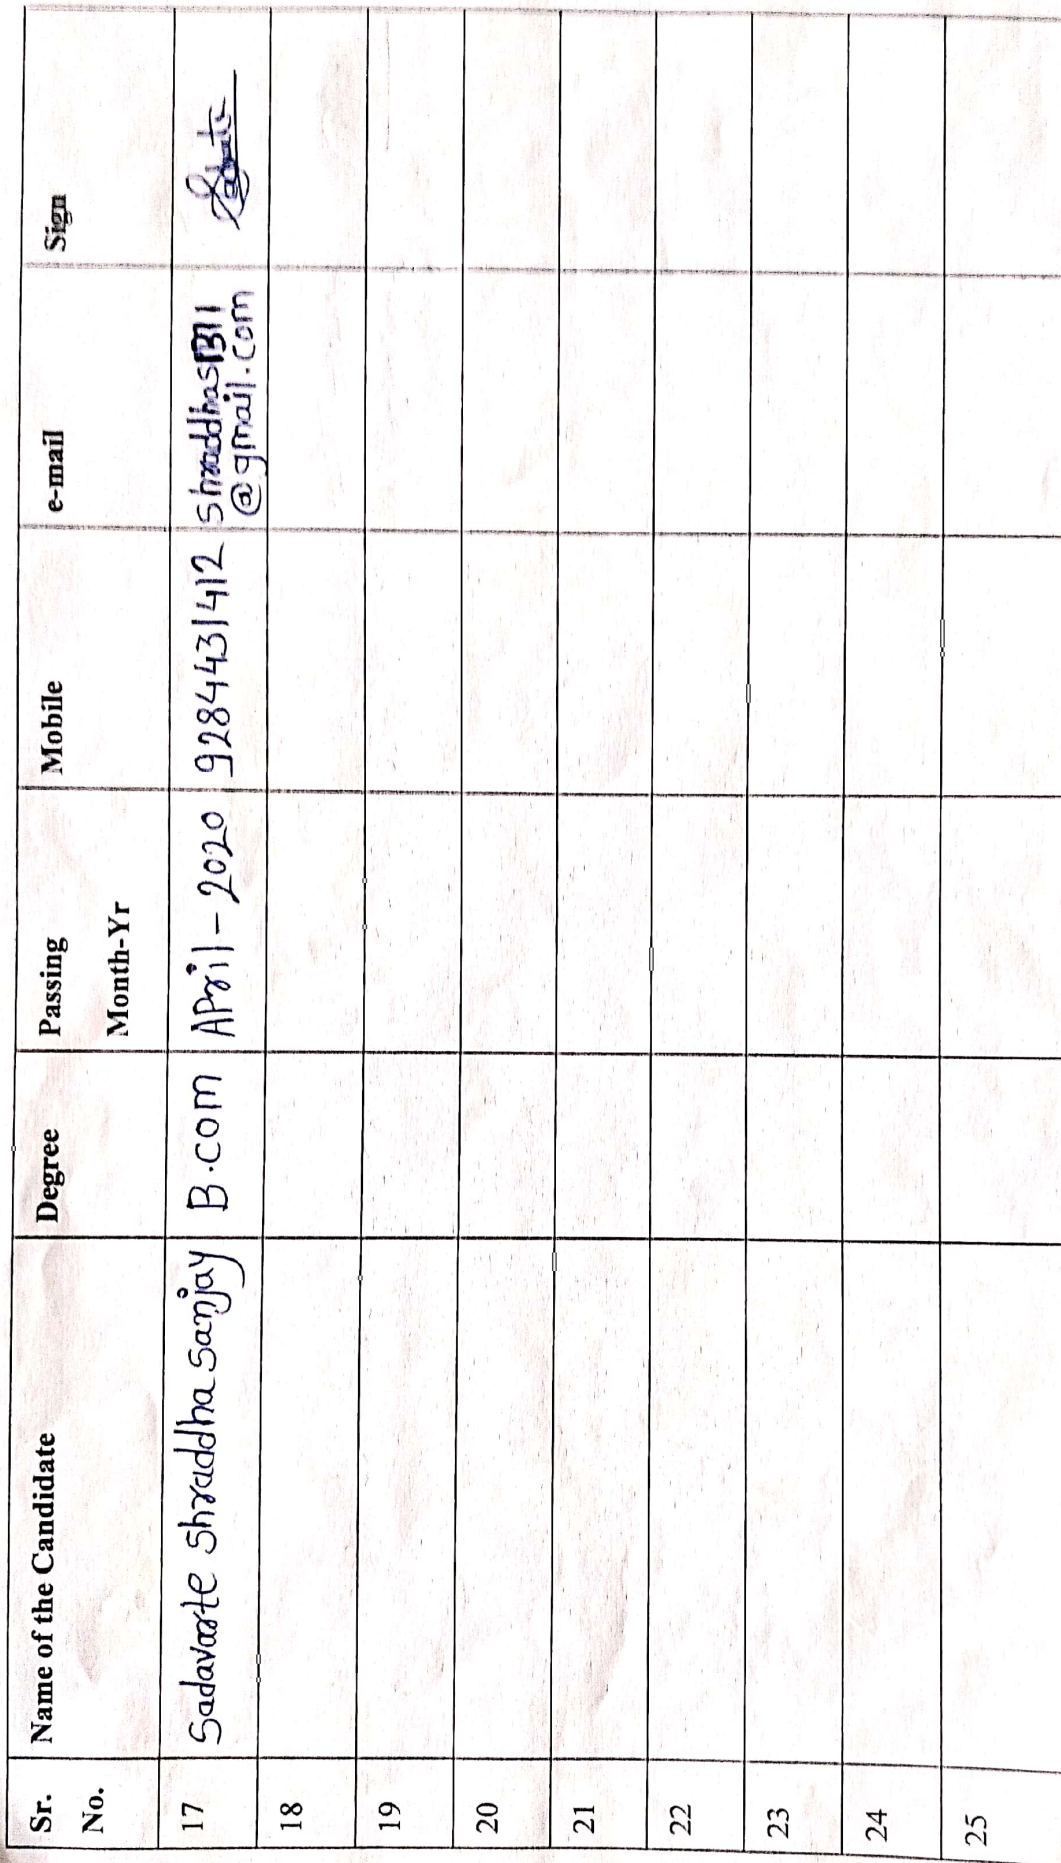 Sr. No. Name of the Candidate Degree Passing Month-Yr Mobile e-mail Sign
17 Sadavarte Shraddha Sanjay B.com April-2020 9284431412 @gmail.com
18
19
20
21
22
23
24
25